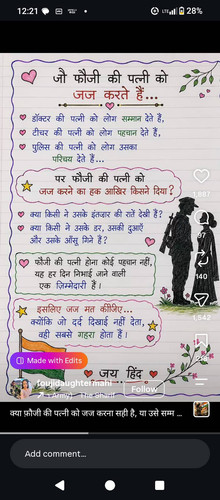 12:21
28%
जो फौजी की पत्नी को
जज करते हैं...
डॉक्टर की पत्नी को लोग सम्मान देते हैं,
टीचर की पत्नी को लोग पहचान देते हैं,
पुलिस की पत्नी को लोग उसका
परिचय देते हैं...
पर फौजी की पत्नी को
जज करने का हक आखिर किसने दिया?
क्या किसी ने उसके इंतजार की रातें देखी हैं?
क्या किसी ने उसके डर, उसकी दुआएँ
और उसके आँसू गिने हैं?
फौजी की पत्नी होना कोई पहचान नहीं,
यह हर दिन निभाई जाने वाली
एक ज़िम्मेदारी है।
इसलिए जज मत कीजिए...
क्योंकि जो दर्द दिखाई नहीं देता,
वही सबसे गहरा होता है।
जय हिंद
140
1,542
Made with Edits
foujidaughtermahi
Follow
क्या फ़ौजी की पत्नी को जज करना सही है, या उसे सम्म ...
Add comment...